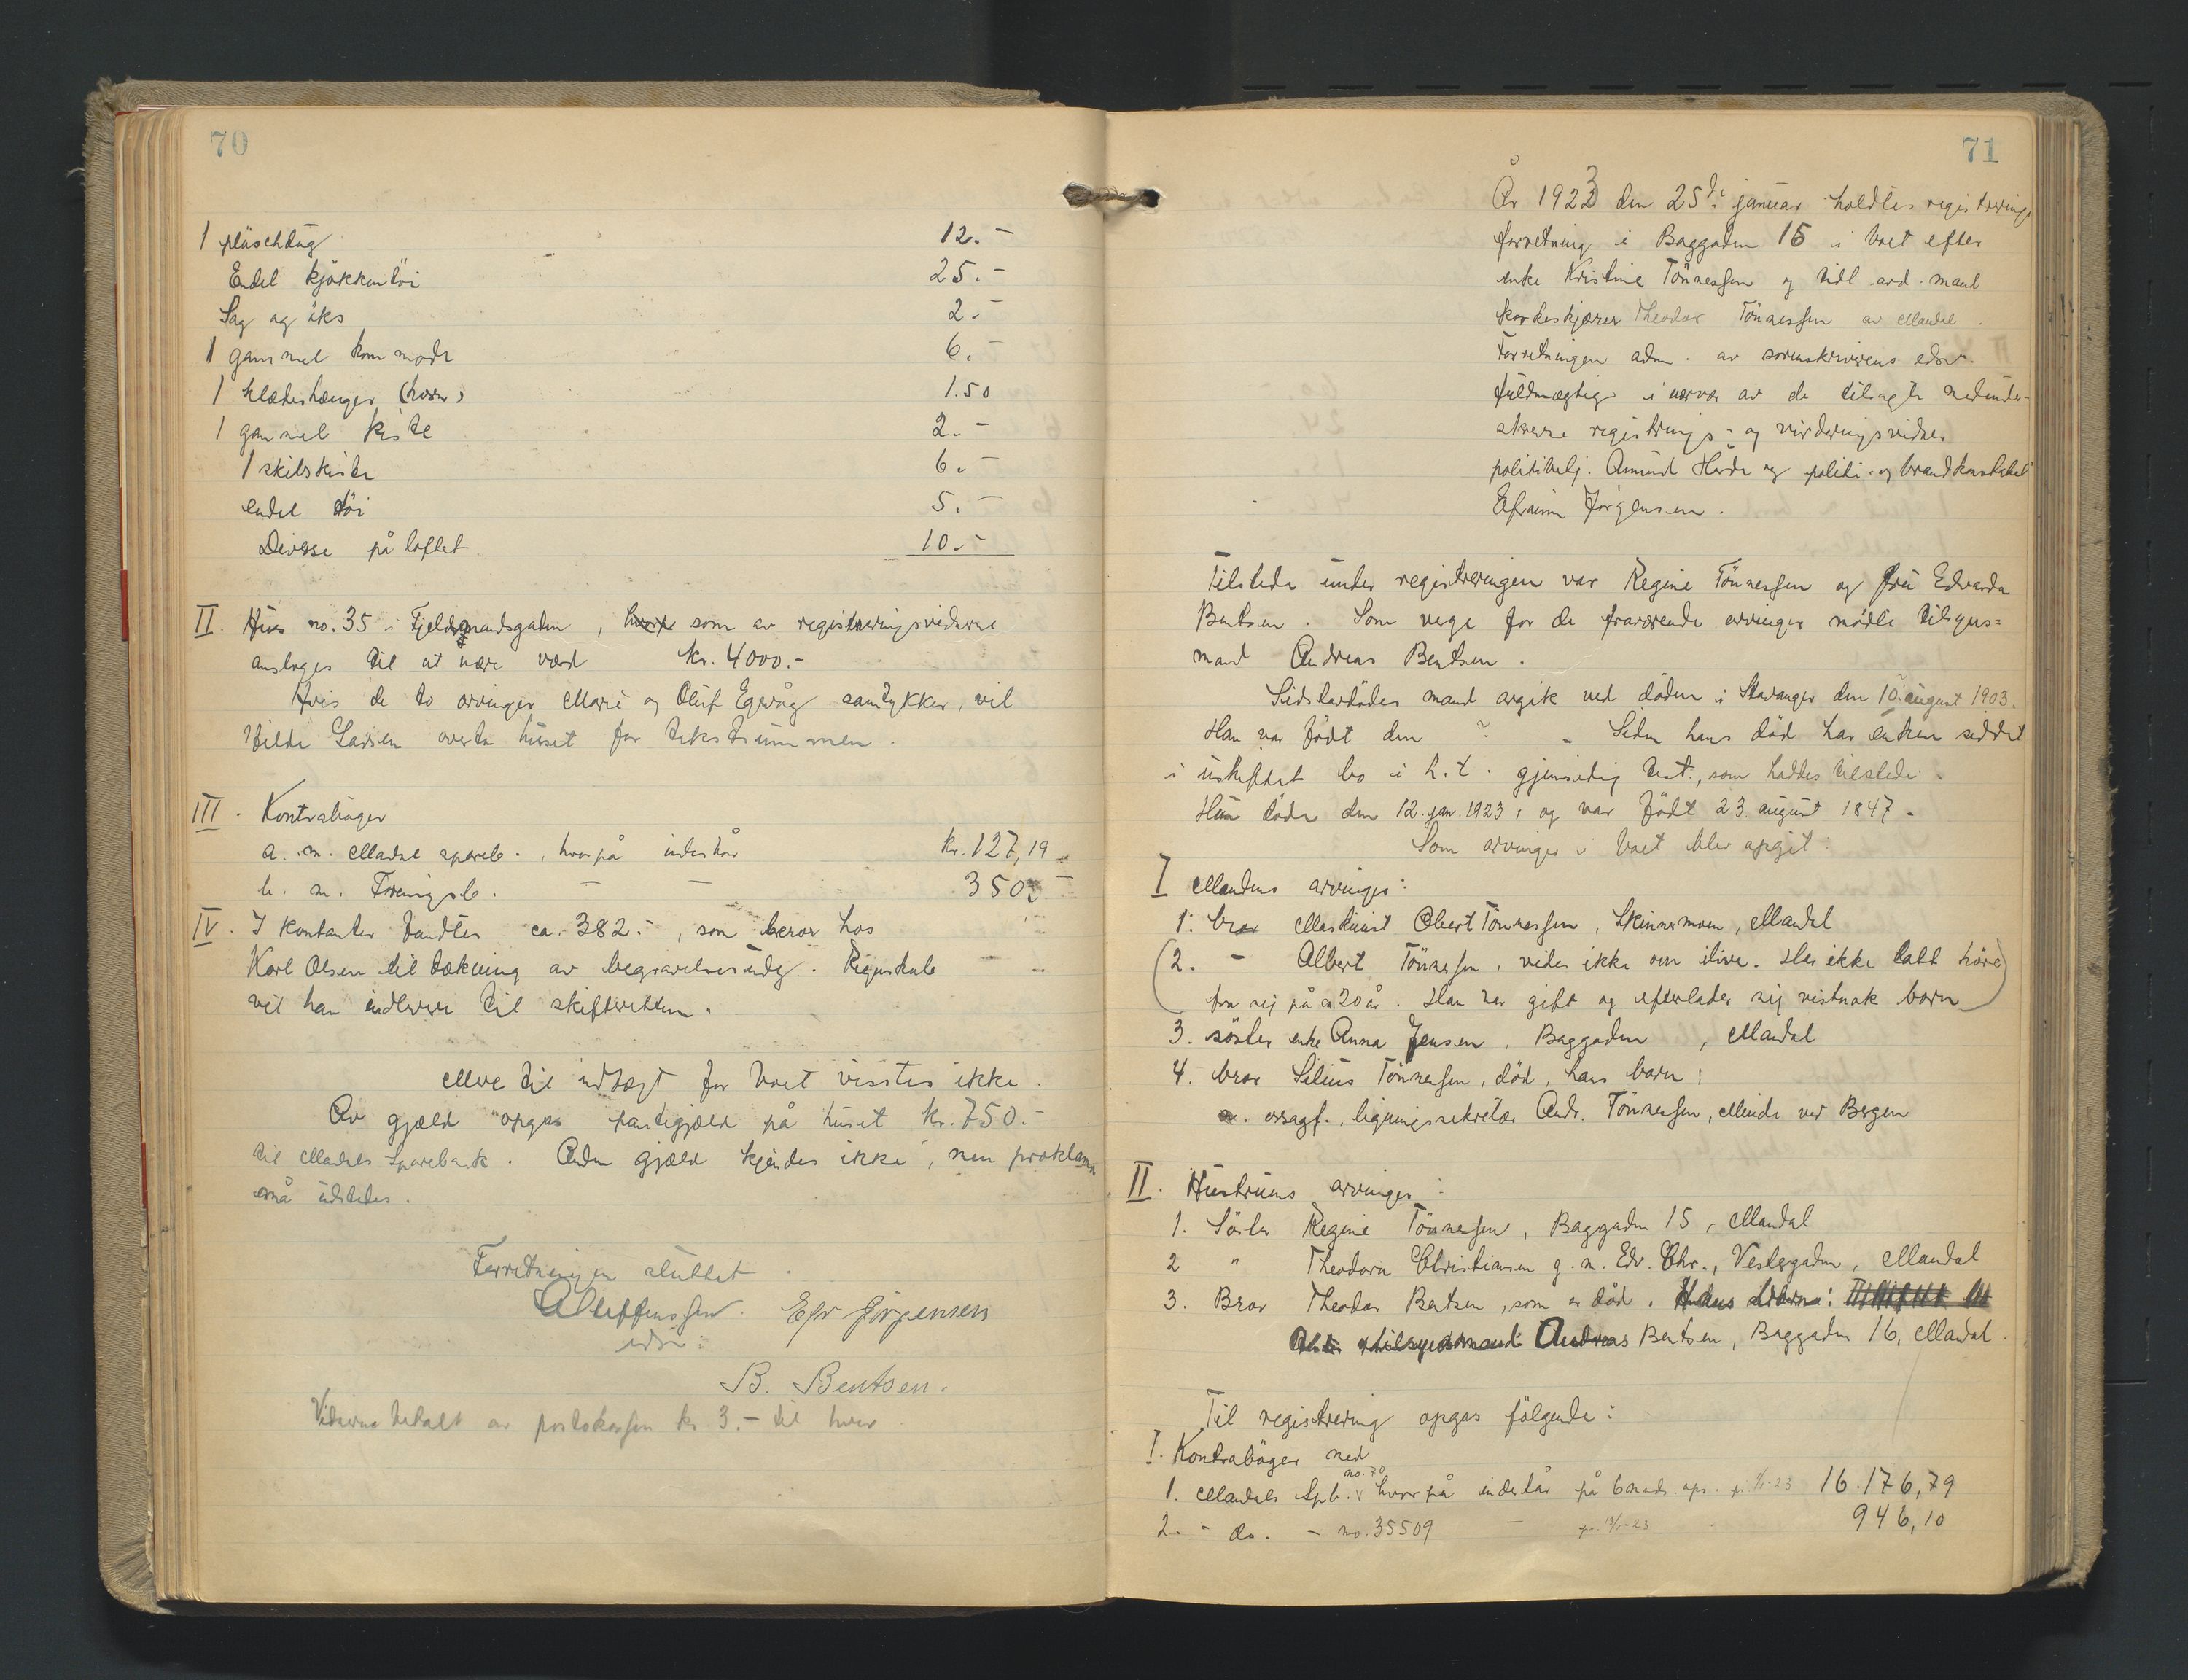 70
1 plüschdug 12.-
Endel kjökkentöi 25.-
Sag og öks 2.-
1 gammel kommode 6.-
1 klædeshænger (hvor) 1.50
1 gammel kiste 2.-
1 skibskiste 6.-
endel töi 5.-
Diverse på loftet 10.-
II. Hus no. 35 i Fjeldmandsgaten, som av registreringsvidnene
ansloges til at være værd kr. 4000.-
Hvis de to arvinger Marie og Oluf Egeråg samtykker, vil
Hilda Larsen overta huset for takstsummen.
III. Kontraböger
a. m. Mandal spareb., hvorpå indestår kr. 127,19
b. m. Foreningsb. - - 350.-
IV. I kontanter fandtes ca. 382.-, som beror hos
Karl Olsen til dækning av begravelsesutg. Regnskab
vil han indlevere til skifteretten.
Mere til indtægt for boet visstes ikke.
Av gjæld opgas pantegjæld på huset kr. 750.-
til Mandals Sparebank. Anden gjæld kjendes ikke, men proklama
må utstedes.
Forretningen sluttet.
Efr Jörgensen
edsv:
B. Bentsen.
Vidnerne betalt av portokassen kr 3.- til hver
71
År 1923 den 25de januar holdtes registrerings
forretning i Baggaden 15 i boet efter
enke Kristine Tönnessen og tidl. avd. mand
korkeskjærer Theodor Tönnessen av Mandal.
Forretningen adm. av sorenskriverens edsv.
fuldmægtig i nærvær av de tilsagte medunder-
skrevne registrerings- og vurderingsvidner
politibetj. Amund Herde og politi- og brandkonstabel
Efraim Jörgensen.
Tilstede under registreringen var Regine Tönnessen og fru Edvarda
Bentsen. Som verge for de fraværende arvinger mödte tilsyns=
mand Andreas Bentsen.
Sidstavdödes mand avgik ved döden i Stavanger den 10. august 1903.
Han var födt den ? - Siden hans död har enken siddet
i uskiftet bo i h.t. gjensidig test., som haddes tilstede.
Hun döde den 12. jan. 1923, og var födt 23. august 1847.
Som arvinger i boet blev opgit:
I Mandens arvinger:
1. bror Maskinist Obert Tönnessen, Skinsmoen, Mandal
(2. - Albert Tönnessen, vides ikke om ilive. Har ikke latt höre
fra sig på ca. 20 år. Han var gift og efterlader sig vistnok barn)
3. söster enke Anna Jensen, Baggaden, Mandal
4. bror Silius Tönnessen, död, hans barn:
a. orsagf., ligningssekretær Andr. Tönnessen, Minde ved Bergen
II. Hustruens arvinger:
1. Söster Regine Tönnessen, Baggaden 15, Mandal
2 " Theodora Christiansen g. m. Edv. Chr., Vestergaden, Mandal
3. Bror Theodor Bentsen, som er död. Hans
tilsynsmand Andreas Bentsen, Baggaden 16, Mandal.
Til registrering opgas fölgende:
I. Kontraböger med
1. Mandals Spb. no. 70 hvorpå indestår på 6 mdr. ops. pr. 1/1-23 16.176,79
2. - do. - no. 35509 - pr. 13/1-23 946,10